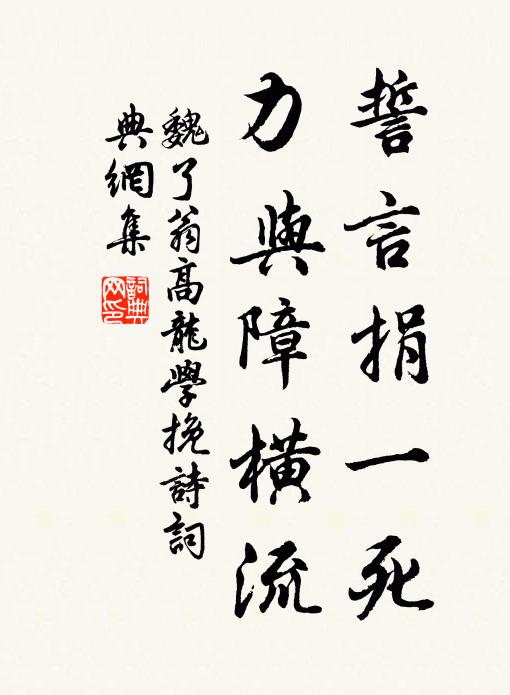 誓言捐一死
力與障橫流
魏了翁高龍學挽詩詞
典網集
詞典
网印